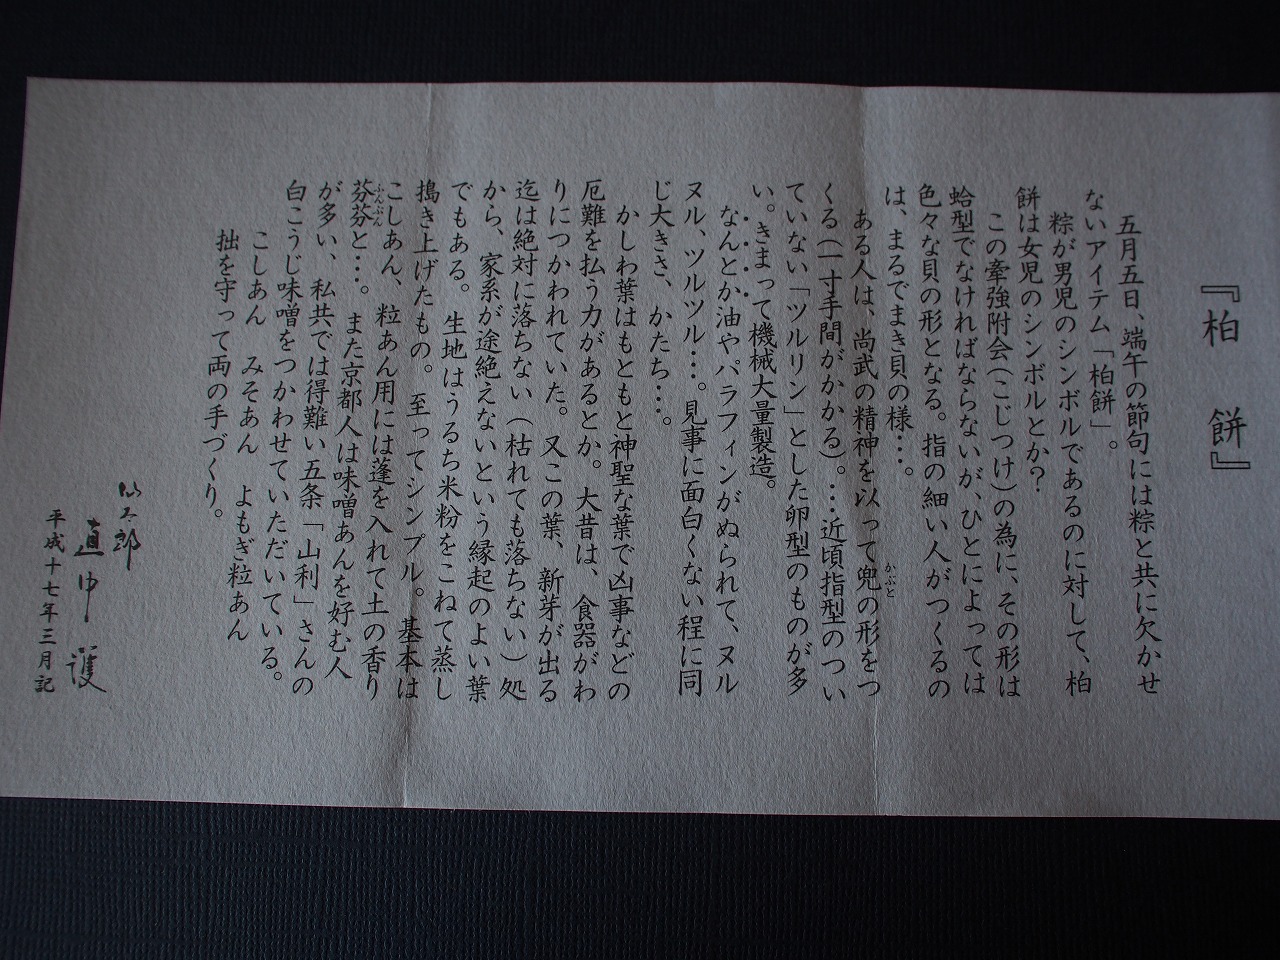 『柏餅』
五月五日、端午の節句には粽と共に欠かせ
ないアイテム「柏餅」。
粽が男児のシンボルであるのに対して、柏
餅は女児のシンボルとか?
この牽強附会(こじつけ)の為に、その形は
蛤型でなければならないが、ひとによっては
色々な貝の形となる。指の細い人がつくるの
は、まるでまき貝の様…。
ある人は、尚武の精神を以って兜の形をつ
かぶと
くる(一寸手間がかかる)。…近頃指型のつい
ていない「ツルリン」とした卵型のものが多
い。きまって機械大量製造。
なんとか油やパラフィンがぬられて、ヌル
ヌル、ツルツル…。見事に面白くない程に同
じ大きさ、かたち…。
かしわ葉はもともと神聖な葉で凶事などの
厄難を払う力があるとか。大昔は、食器がわ
りにつかわれていた。又この葉、新芽が出る
迄は絶対に落ちない(枯れても落ちない)処
から、家系が途絶えないという縁起のよい葉
でもある。生地はうるち米粉をこねて蒸し
搗き上げたもの。至ってシンプル。基本は
こしあん、粒あん用には蓬を入れて土の香り
芬芬と…。また京都人は味噌あんを好む人
ふんぷん
が多い、私共では得難い五条「山利」さんの
白こうじ味噌をつかわせていただいている。
こしあん みそあん よもぎ粒あん
拙を守って両の手づくり。
直中護
平成十七年三月記